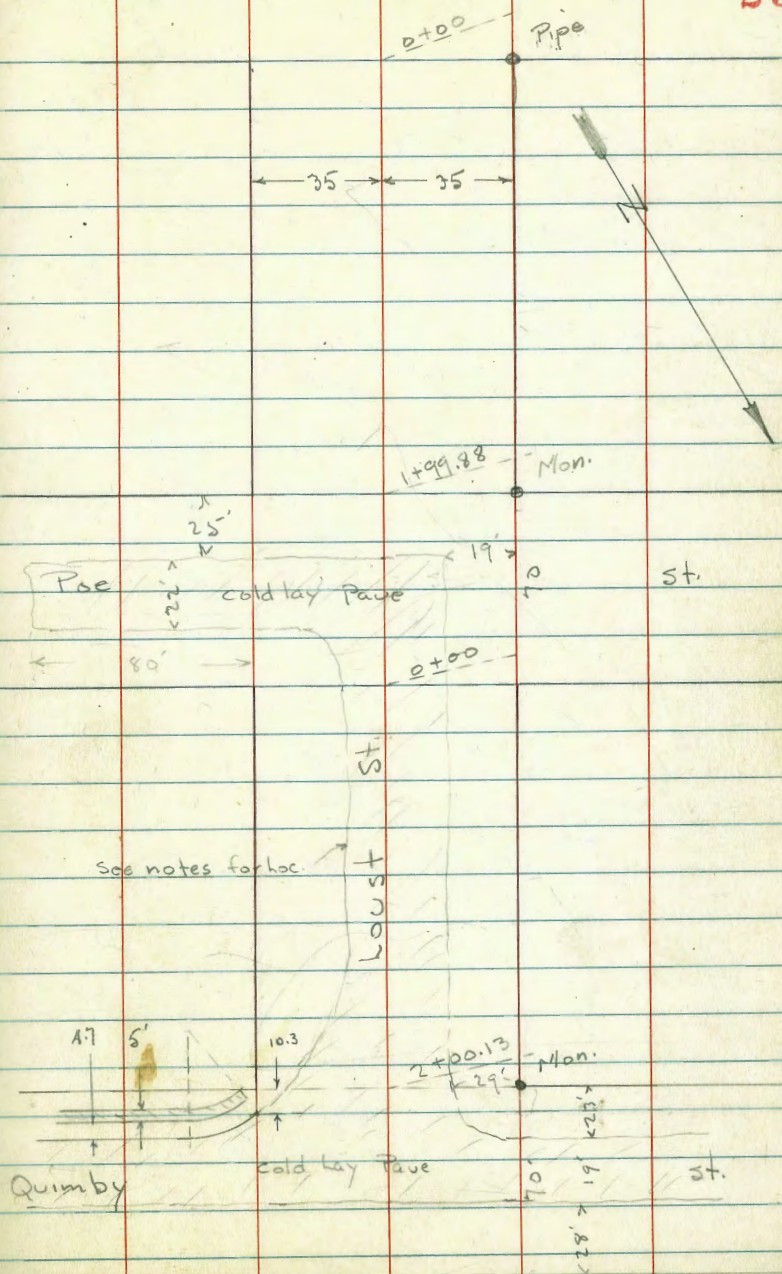 0+00
Pipe
35 35
N
1+99.88 Mon.
25'
19'
Poe 22' cold lay Pave 70 St.
80'
0+00
Locust St.
See notes for loc.
4.7 5' 10.3
2+00.13 Mon.
29'
Cold Lay Pave 70' 19' St.
Quimby
28'